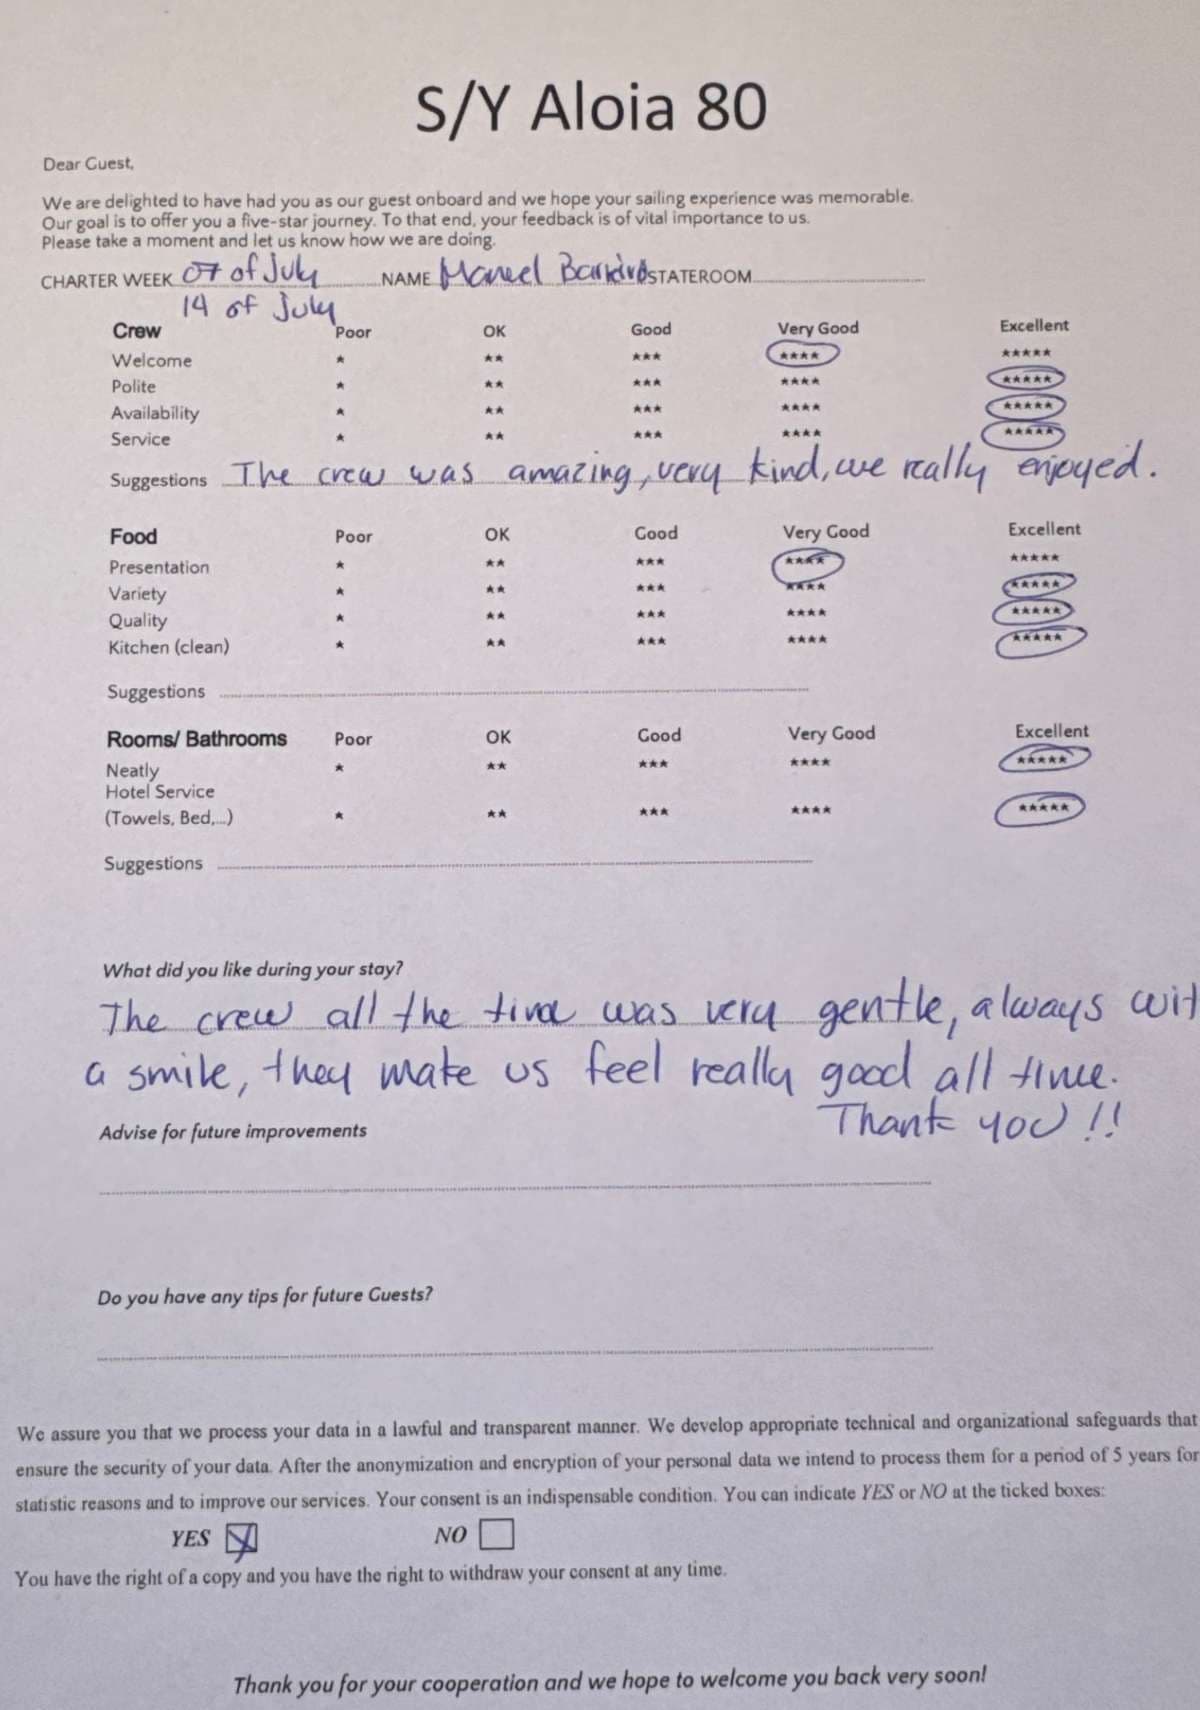 S/Y Aloia 80
Dear Guest,
We are delighted to have had you as our guest onboard and we hope your sailing experience was memorable.
Our goal is to offer you a five-star journey. To that end, your feedback is of vital importance to us.
Please take a moment and let us know how we are doing.
CHARTER WEEK 07 of July NAME STATEROOM
14 of July
Crew Poor OK Good Very Good Excellent
Welcome ★ ★★ ★★★ ★★★★ ★★★★★
Polite ★ ★★ ★★★ ★★★★ ★★★★★
Availability ★ ★★ ★★★ ★★★★ ★★★★★
Service ★ ★★ ★★★ ★★★★ ★★★★★
Suggestions The crew was amazing, very kind, we really enjoyed.
Food Poor OK Good Very Good Excellent
Presentation ★ ★★ ★★★ ★★★★ ★★★★★
Variety ★ ★★ ★★★ ★★★★ ★★★★★
Quality ★ ★★ ★★★ ★★★★ ★★★★★
Kitchen (clean) ★ ★★ ★★★ ★★★★ ★★★★★
Suggestions
Rooms/ Bathrooms Poor OK Good Very Good Excellent
Neatly ★ ★★ ★★★ ★★★★ ★★★★★
Hotel Service
(Towels, Bed,...) ★ ★★ ★★★ ★★★★ ★★★★★
Suggestions
What did you like during your stay?
The crew all the time was very gentle, always wit
a smile, they make us feel really good all time.
Thank you !!
Advise for future improvements
Do you have any tips for future Guests?
We assure you that we process your data in a lawful and transparent manner. We develop appropriate technical and organizational safeguards that
ensure the security of your data. After the anonymization and encryption of your personal data we intend to process them for a period of 5 years for
statistic reasons and to improve our services. Your consent is an indispensable condition. You can indicate YES or NO at the ticked boxes:
YES NO
You have the right of a copy and you have the right to withdraw your consent at any time.
Thank you for your cooperation and we hope to welcome you back very soon!